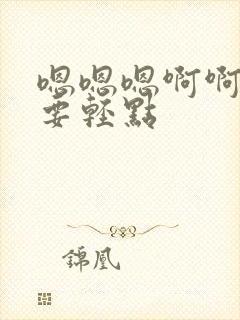 嗯嗯嗯啊啊
要轻點
錦凰